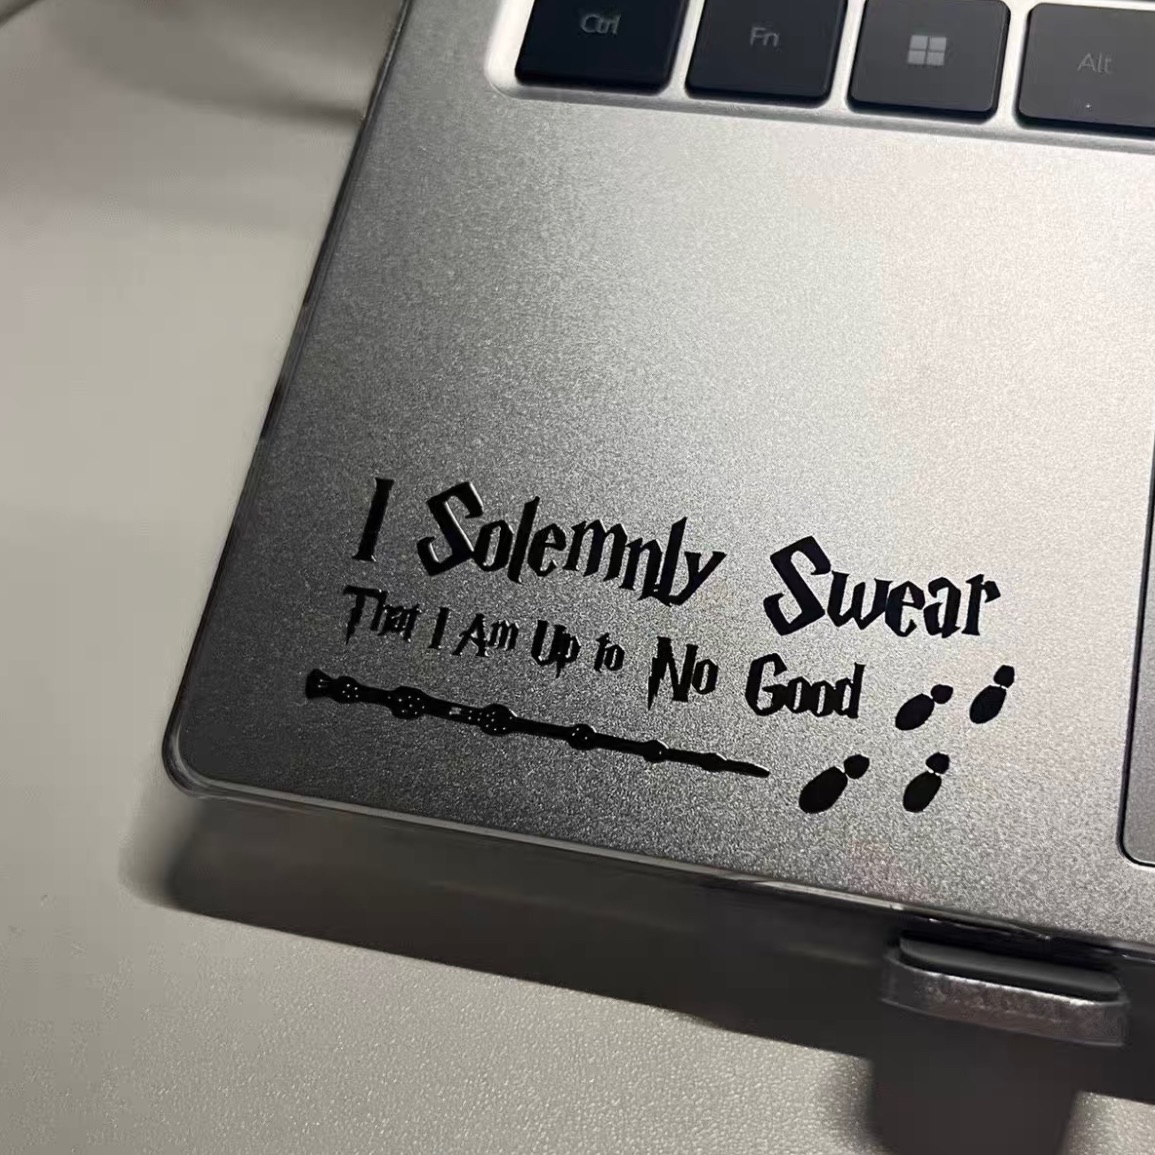 Ctrl Fn Alt
I Solemnly Swear
That I Am Up to No Good